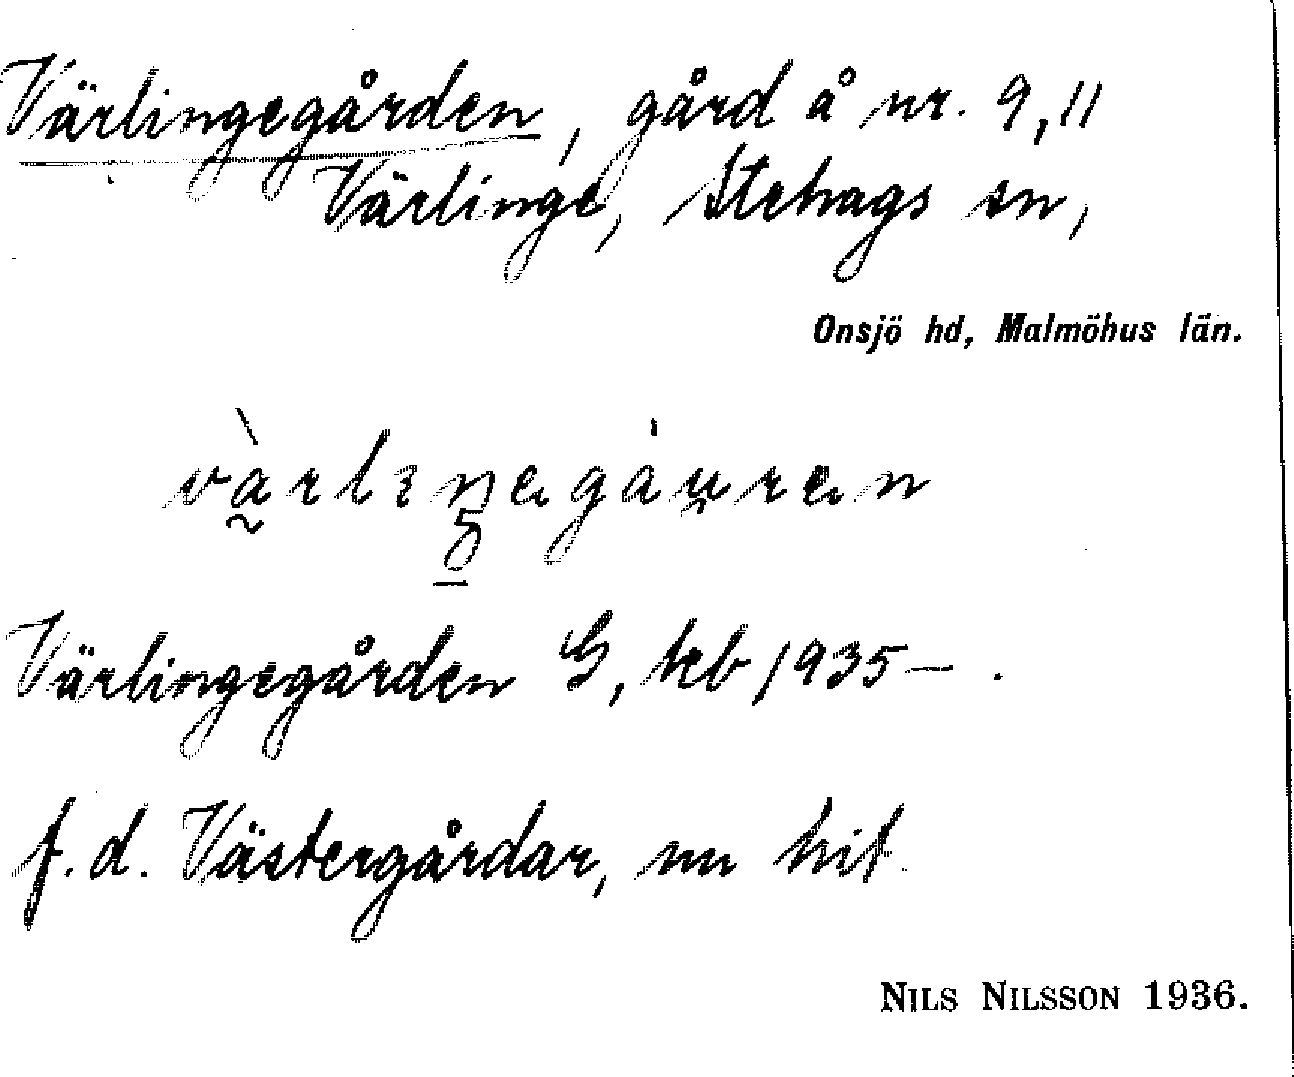 Värlingegården, gård å nr. 9, 11
Värlinge, Stehags sn,
Onsjö hd, Malmöhus län.
Värlingegården G, kb 1935– .
f. d. Västergårdar, nu hit.
NILS NILSSON 1936.